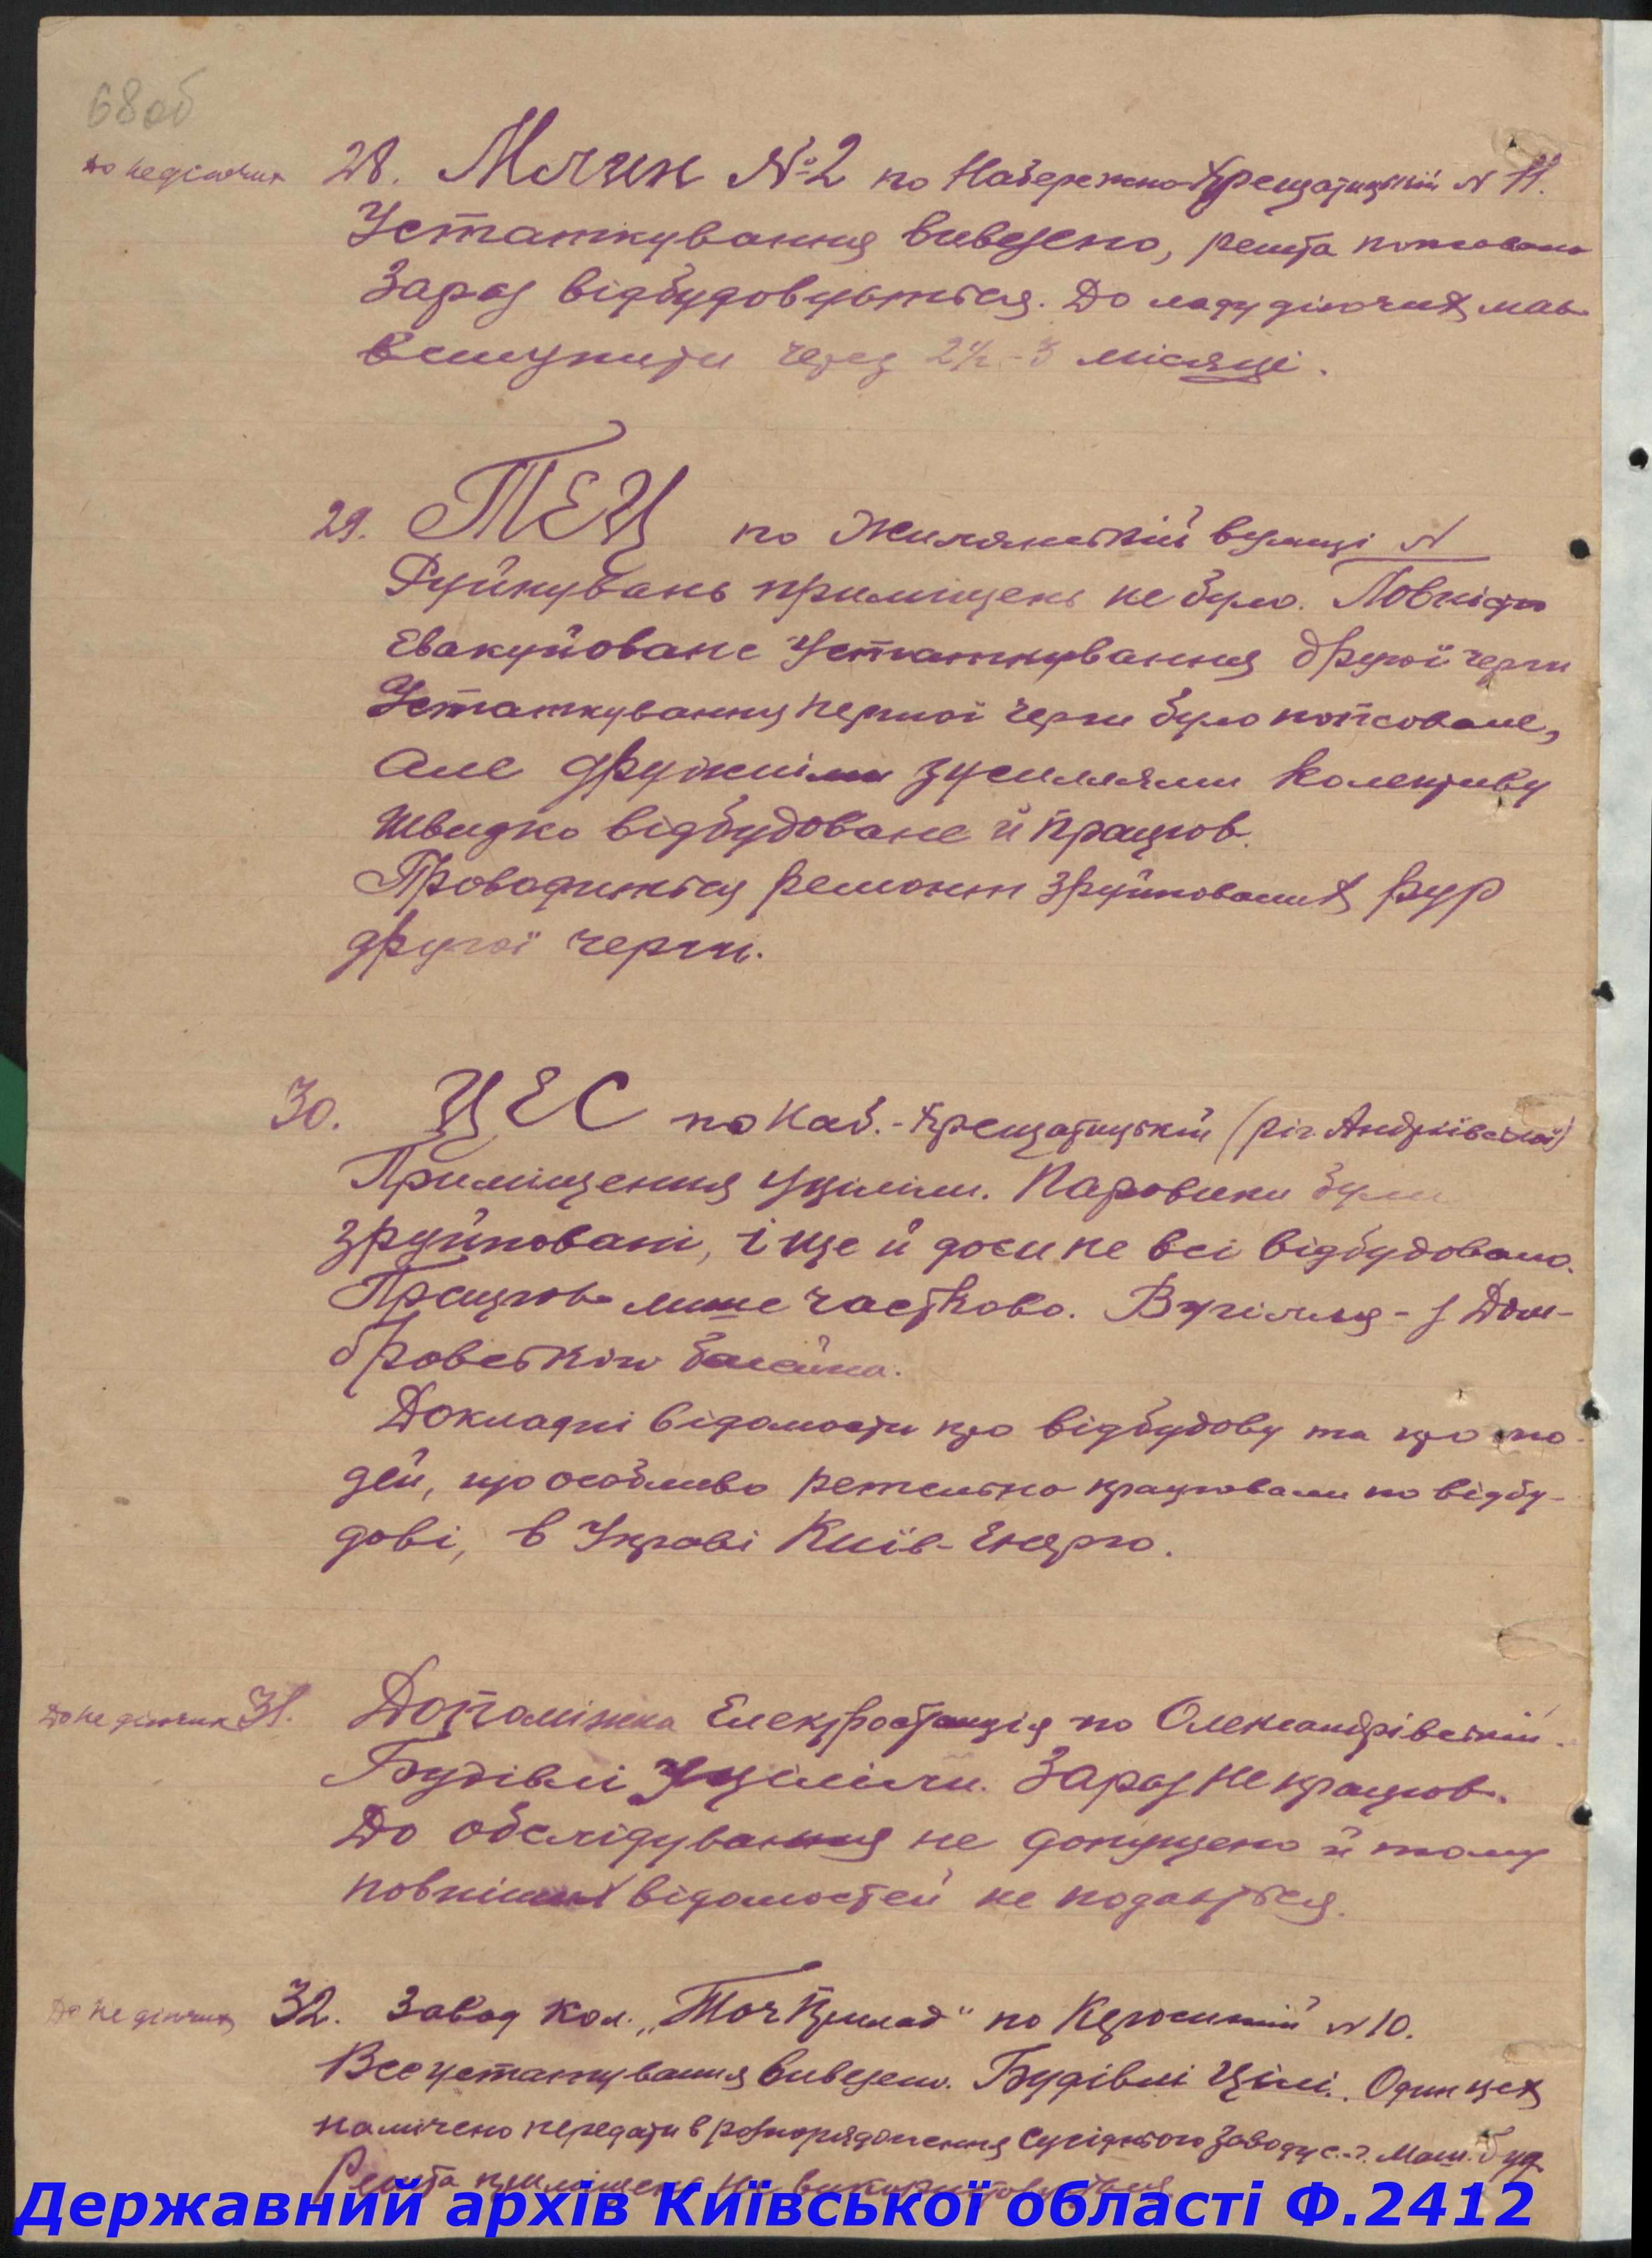 68об
до недіючих 28. Млин №2 по Набережно-Хрещатицькій № 11.
Устаткування вивезено, решта попсована
Зараз відбудовується. До ладу діючих має
вступити через 2½ - 3 місяці.
29. ТЕЦ по Жилянській вулиці №
Руйнувань приміщень не було. Повністю
Евакуйоване Устаткування другої черги
Устаткування першої черги було попсоване,
але дружніми зусиллями колективу
швидко відбудоване й працює.
Провадиться ремонт зруйнованих рур
другої черги.
30. ЦЕС по Наб.-Хрещатицькій (ріг Андріївської)
Приміщення уціліли. Паровики були
зруйновані, і ще й досі не всі відбудовано.
Працює лише частково. Вугілля - з Дом-
бровського басейна.
Докладні відомости про відбудову та про лю-
дей, що особливо ретельно працювали по відбу-
дові, в Управі Київ-Енерго.
До не діючих 31. Допоміжна Електростанція по Олександрівській.
Будівлі Уціліли. Зараз не працює.
До обслідування не допущено й тому
повніших відомостей не подається.
До не діючих 32. Завод кол. „Точприлад" по Керосинній № 10.
Все устаткування вивезено. Будівлі цілі. Один цех
намічено передати в розпорядження сусіднього заводу с.-г. Маш. буд.
Решта приміщень не використовується.
Державний архів Київської області Ф.2412